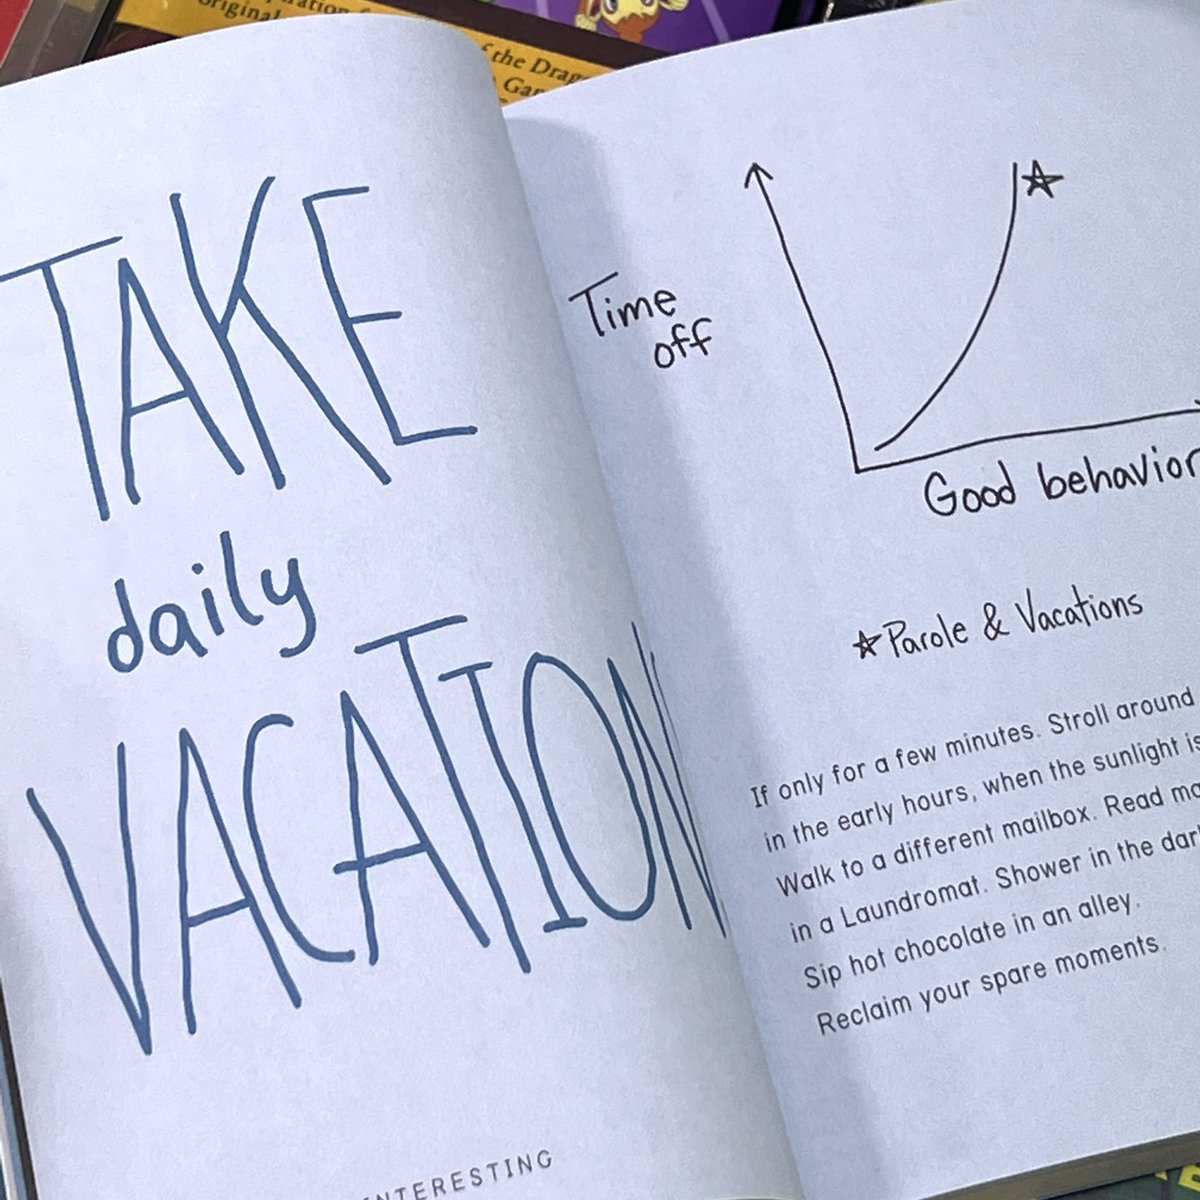 original
of the
TAKE
daily
VACATION
INTERESTING
Time
off
Good behavior
☆Parole & Vacations
If only for a few minutes. Stroll around
in the early hours, when the sunlight is
Walk to a different mailbox. Read
in a Laundromat. Shower in the dark
Sip hot chocolate in an alley.
Reclaim your spare moments.